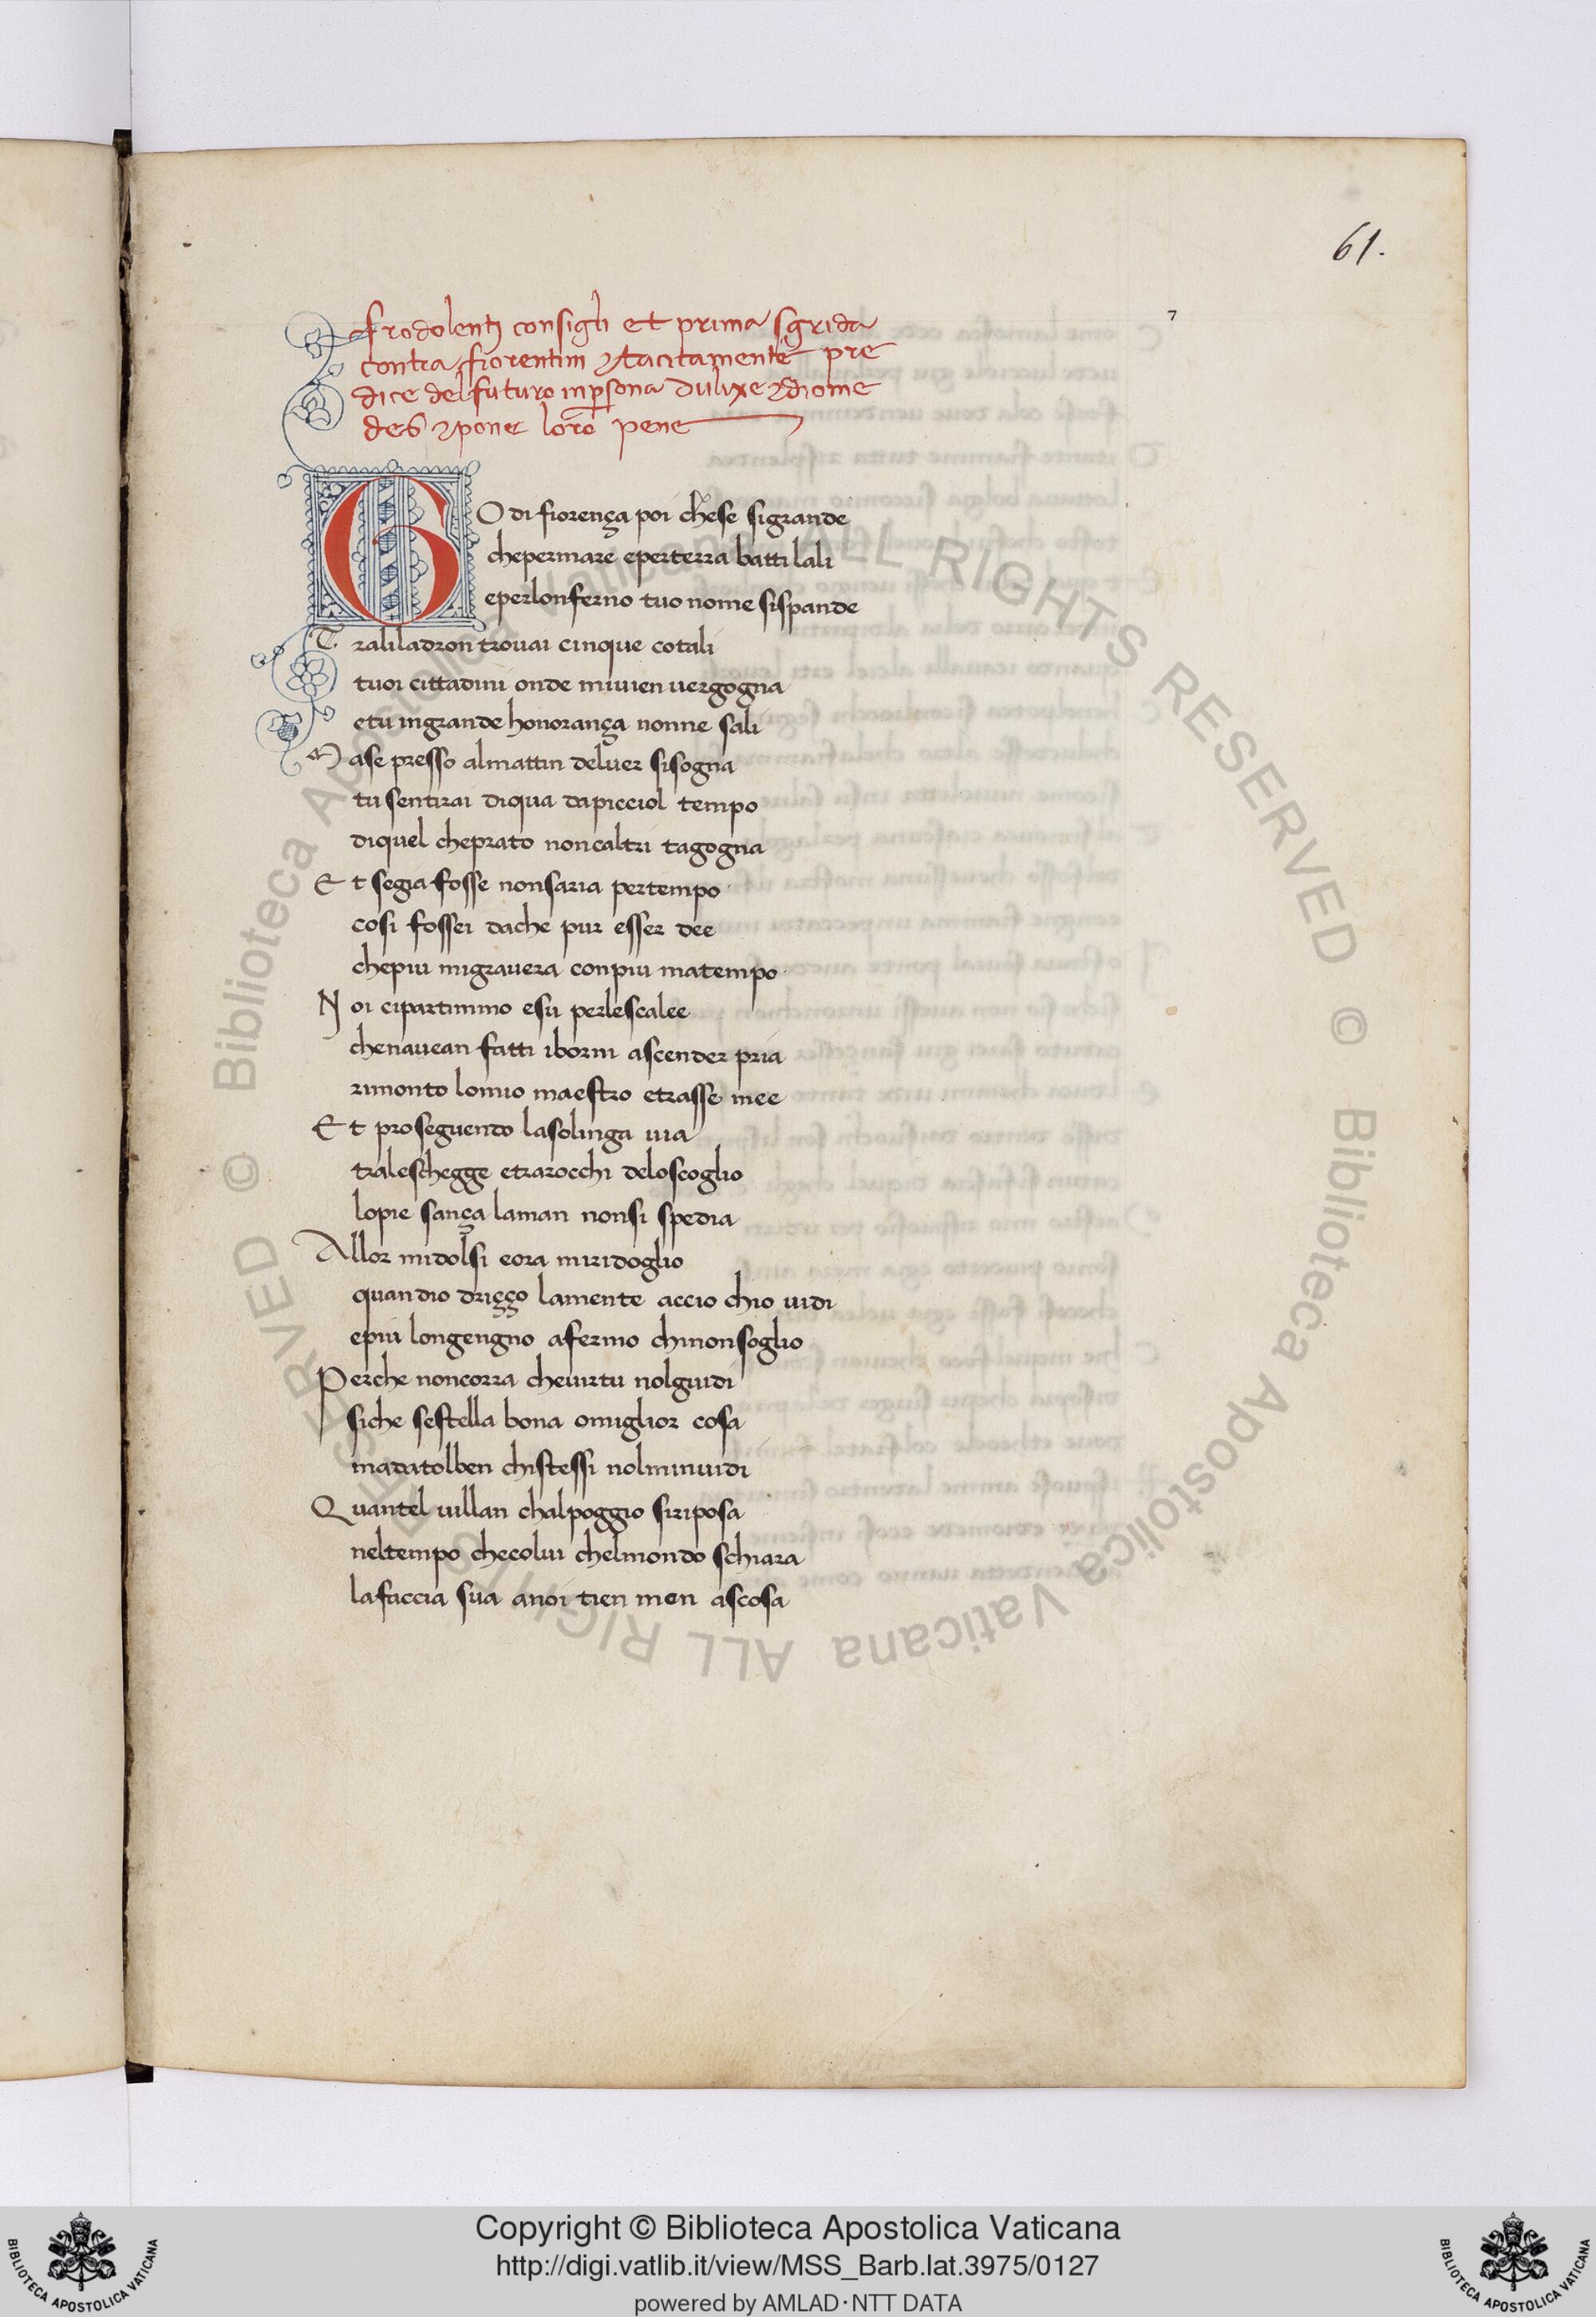 61.
frodolenti consigli et prima sgrida
contra fiorentini ⁊ tacitamente pre
dice del futuro inpersona dulixe ⁊ diome
des ⁊ pone loro pene
GOdi fiorença poi chese sigrande
chepermare eperterra batti lali
eperlonferno tuo nome sispande
Traliladron trouai cinque cotali
tuoi cittadini onde miuien uergogna
etu ingrande honorança nonne sali
Mase presso almattin deluer sisogna
tu sentirai diqua dapicciol tempo
diquel cheprato noncaltri tagogna
Et segia fosse nonsaria pertempo
cosi fossei dache pur esser dee
chepiu migrauera conpiu matempo
Noi cipartimmo esu perlescalee
chenauean fatti iborni ascender pria
rimonto lomio maestro etrasse mee
Et proseguendo lasolinga uia
traleschegge etrarocchi deloscoglio
lopie sança laman nonsi spedia
Allor midolsi eora miridoglio
quandio driçço lamente accio chio uidi
epiu longengno afermo chinonsoglio
Perche noncorra cheuirtu nolguidi
siche sestella bona omiglior cosa
madatolben chistessi nolminuidi
Quantel uillan chalpoggio siriposa
neltempo checolui chelmondo schiara
lafaccia sua anoi tien men ascosa
© Biblioteca Apostolica Vaticana ALL RIGHTS RESERVED © Biblioteca Apostolica Vaticana ALL RIGHTS RESERVED
Copyright © Biblioteca Apostolica Vaticana
http://digi.vatlib.it/view/MSS_Barb.lat.3975/0127
powered by AMLAD·NTT DATA
BIBLIOTECA APOSTOLICA VATICANA
BIBLIOTECA APOSTOLICA VATICANA